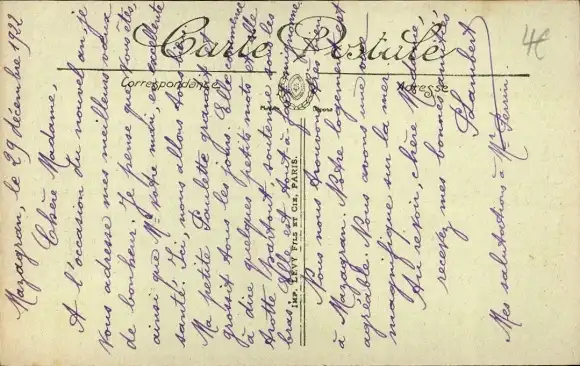 Carte Postale
Correspondance
Adresse
IMP. LEVY FILS ET CIE, PARIS.
4€
Mazagran, le 29 décembre 1922
Chère Madame,
A l'occasion du nouvel an je
vous adresse mes meilleurs vœux
de bonheur. Je pense que vous êtes,
ainsi que Mr votre mari, en excellente
santé. Ici, nous allons tous bien.
Ma petite Paulette grandit et
grossit tous les jours. Elle commence
à dire quelques petits mots et elle
trotte partout soutenue sous les
bras. Elle est tout à fait mignonne.
Nous nous trouvons très bien
à Mazagran. Notre logement est
agréable. Nous avons une vue
magnifique sur la mer.
Au revoir, chère Madame,
recevez mes bonnes amitiés
Lambert
Mes salutations à Mr Perrin